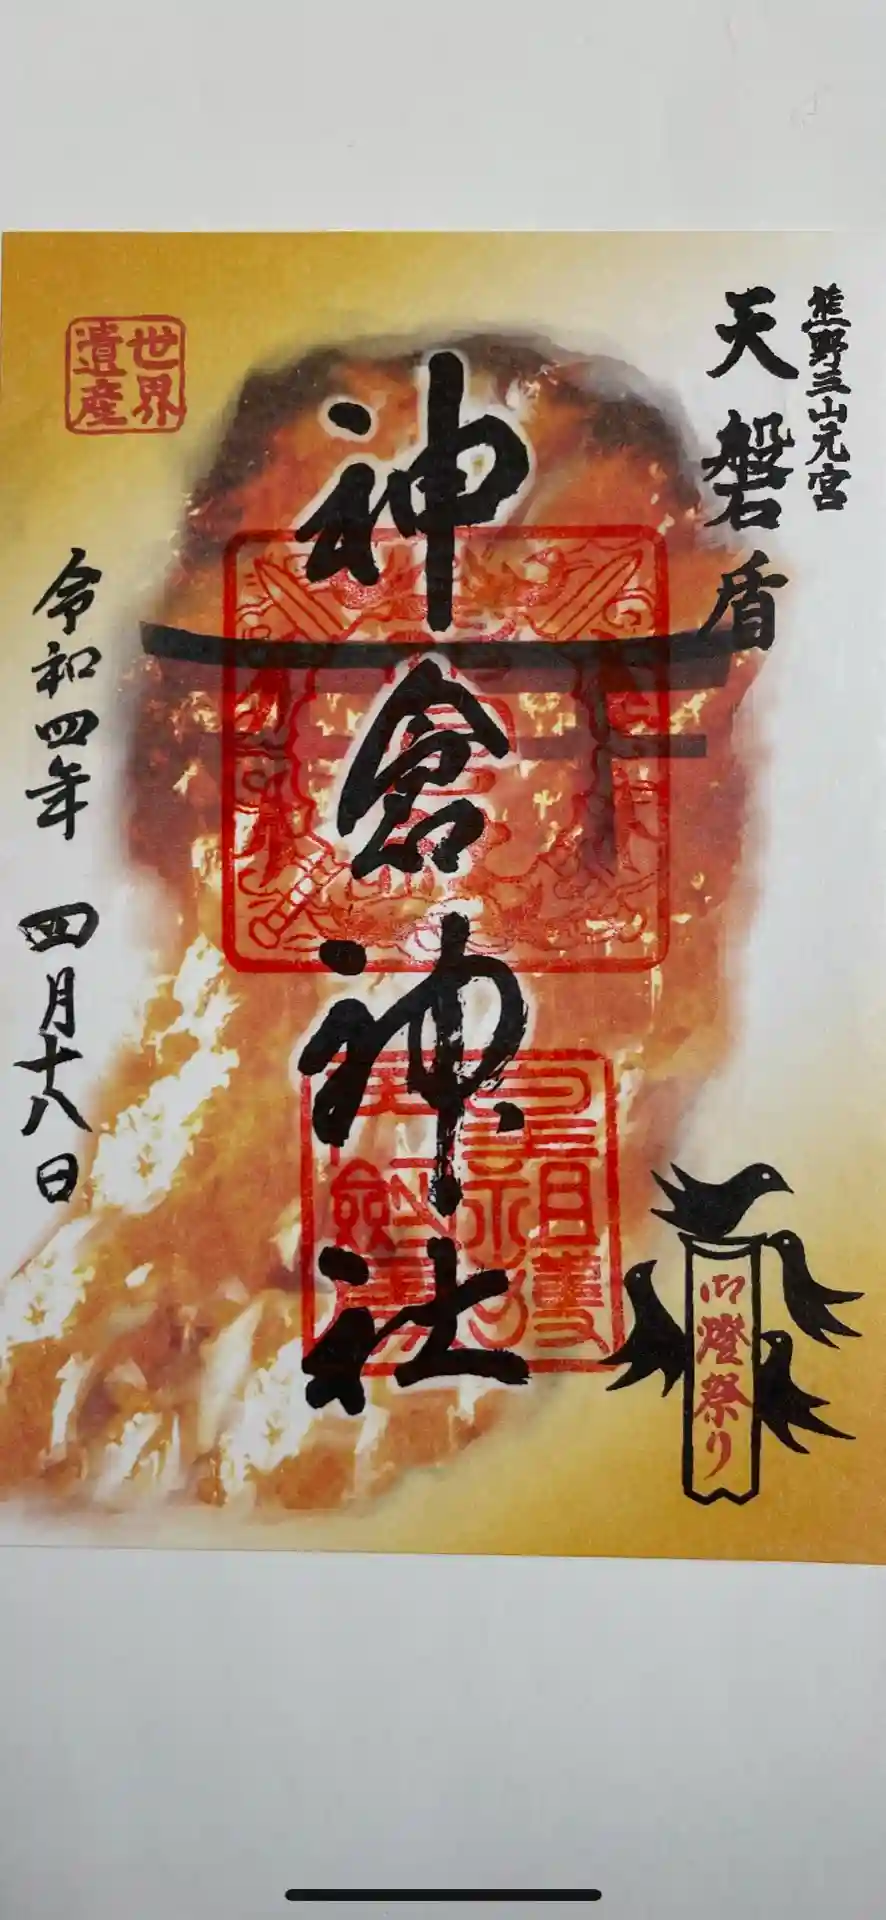 熊野三山元宮
天磐盾
神倉神社
令和四年 四月十八日
世界
遺産
御燈祭り